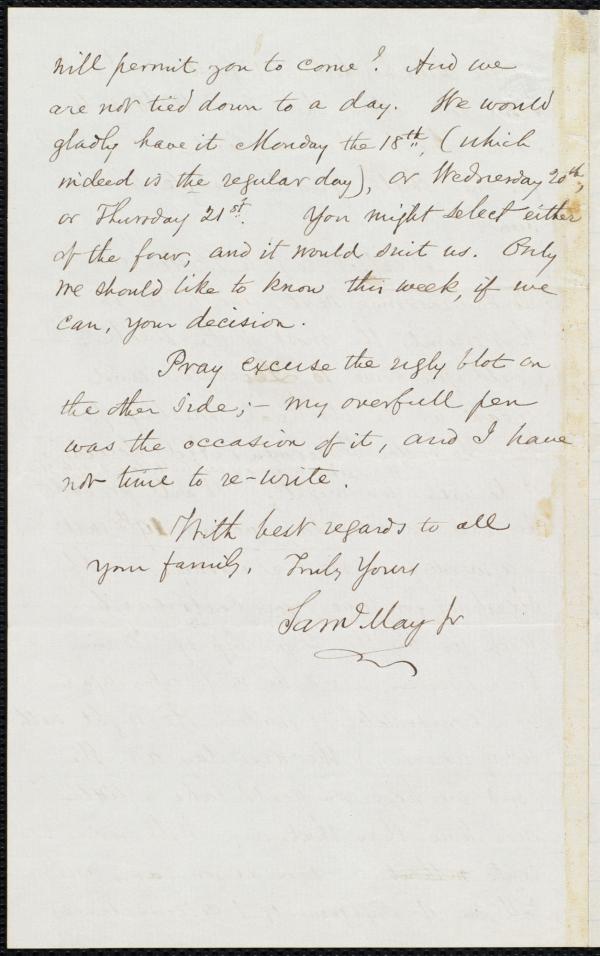 will permit you to come? And we
are not tied down to a day. We would
gladly have it Monday the 18th, (which
indeed is the regular day), or Wednesday 20th,
or Thursday 21st. You might select either
of the four, and it would suit us. Only
we should like to know this week, if we
can, your decision.
Pray excuse the ugly blot on
the other side; - my overfull pen
was the occasion of it, and I have
not time to re-write.
With best regards to all
your family, Truly Yours
Saml May Jr